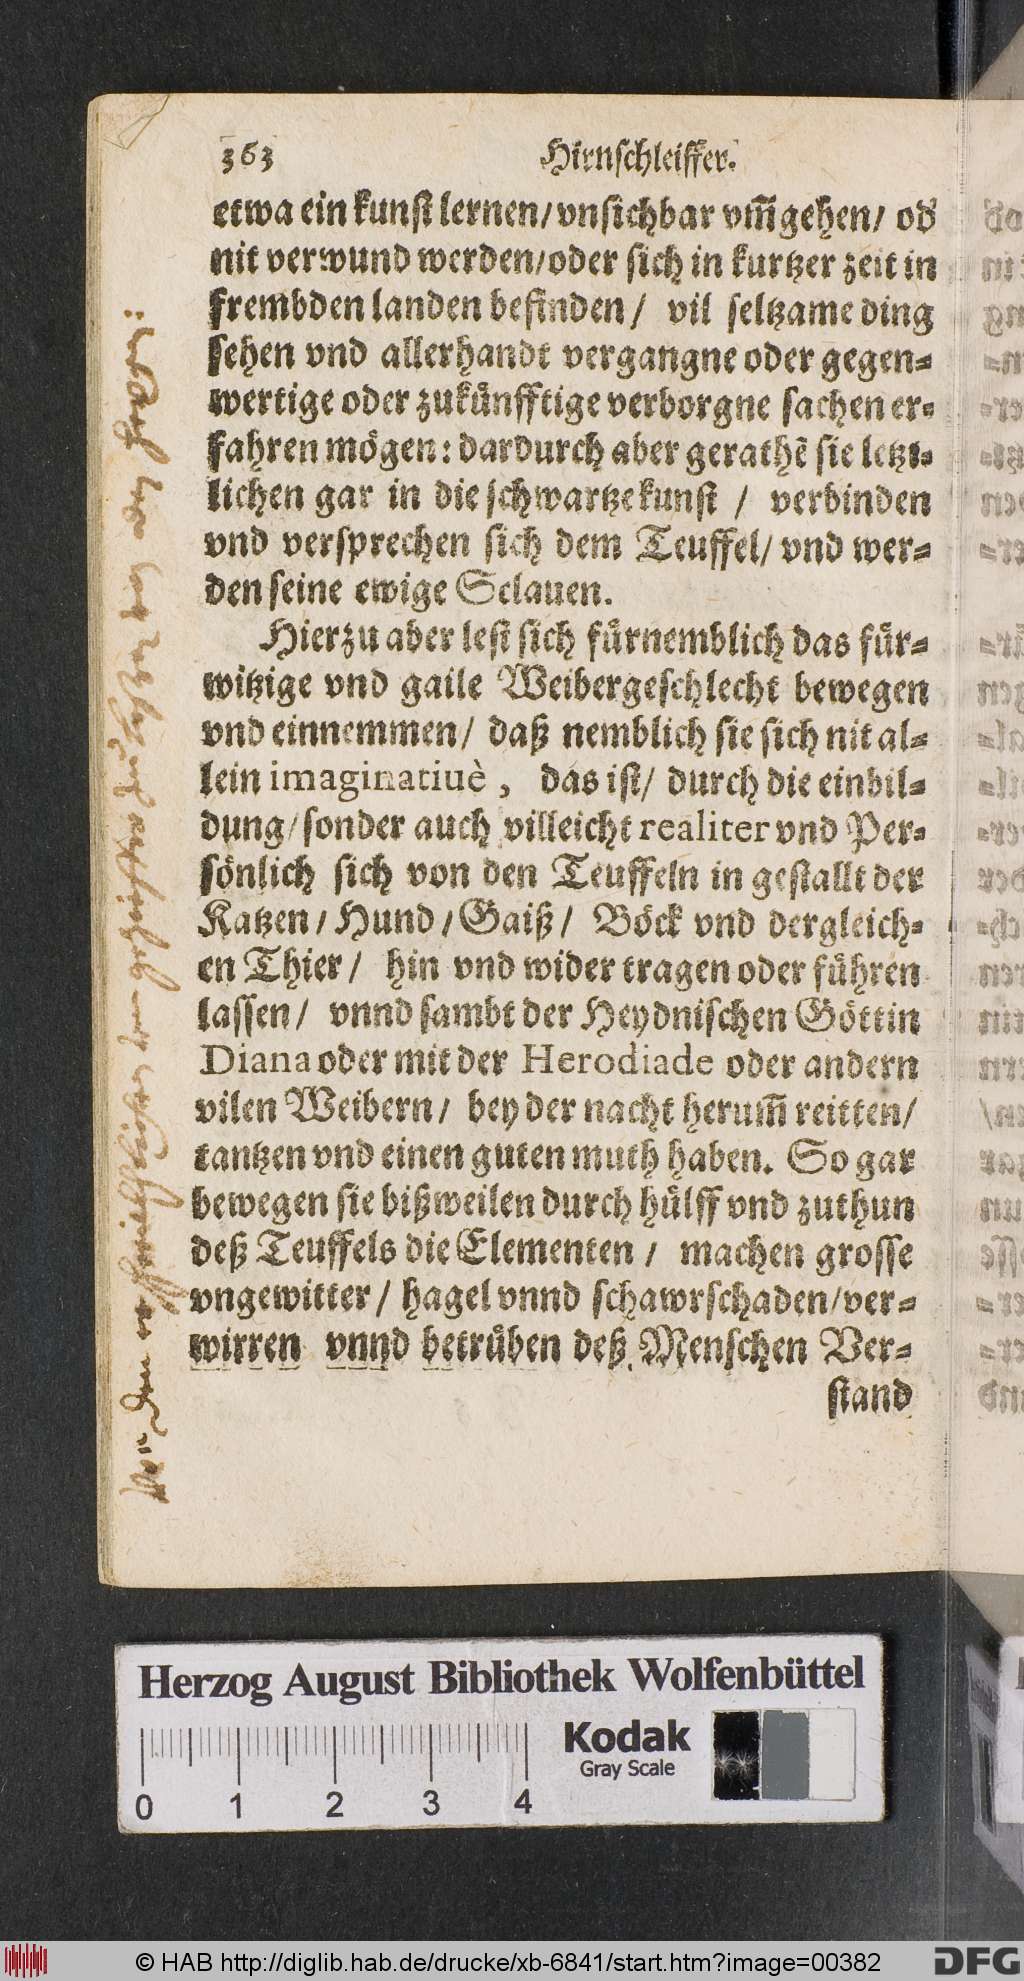 363 Hirnschleiffer.
etwa ein kunst lernen/ vnsichbar vm̃gehen/ od'
nit verwund werden/ oder sich in kurtzer zeit in
frembden landen befinden/ vil seltzame ding
sehen vnd allerhandt vergangne oder gegen-
wertige oder zukünfftige verborgne sachen er-
fahren mögen: dardurch aber gerathẽ sie letzt-
lichen gar in die schwartze kunst / verbinden
vnd versprechen sich dem Teuffel/ vnd wer-
den seine ewige Sclauen.
Hierzu aber lest sich fürnemblich das für-
witzige vnd gaile Weibergeschlecht bewegen
vnd einnemmen/ daß nemblich sie sich nit al-
lein imaginatiuè, das ist/ durch die einbil-
dung/ sonder auch villeicht realiter vnd Per-
sönlich sich von den Teuffeln in gestallt der
Katzen/ Hund/ Gaiß/ Böck vnd dergleich-
en Thier/ hin vnd wider tragen oder führen
lassen/ vnnd sambt der Heydnischen Göttin
Diana oder mit der Herodiade oder andern
vilen Weibern/ bey der nacht herum̃ reitten/
tantzen vnd einen guten muth haben. So gar
bewegen sie bißweilen durch hülff vnd zuthun
deß Teuffels die Elementen/ machen grosse
vngewitter/ hagel vnnd schawrschaden/ ver-
wirren vnnd betrüben deß Menschen Ver-
stand
Herzog August Bibliothek Wolfenbüttel
Kodak
Gray Scale
0 1 2 3 4
© HAB http://diglib.hab.de/drucke/xb-6841/start.htm?image=00382
DFG